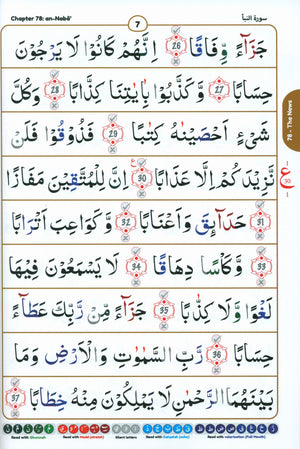 Chapter 78: an-Naba' 7 سورة النبأ
جَزَآءً وِّفَاقًا ﴿26﴾ اِنَّهُمْ كَانُوْا لَا يَرْجُوْنَ
حِسَابًا ﴿27﴾ وَّكَذَّبُوْا بِاٰيٰتِنَا كِذَّابًا ﴿28﴾ وَكُلَّ
شَيْءٍ اَحْصَيْنٰهُ كِتٰبًا ﴿29﴾ فَذُوْقُوْا فَلَنْ
نَّزِيْدَكُمْ اِلَّا عَذَابًا ﴿30﴾ اِنَّ لِلْمُتَّقِيْنَ مَفَازًا
﴿31﴾ حَدَآئِقَ وَاَعْنَابًا ﴿32﴾ وَّكَوَاعِبَ اَتْرَابًا
﴿33﴾ وَّكَاْسًا دِهَاقًا ﴿34﴾ لَا يَسْمَعُوْنَ فِيْهَا
لَغْوًا وَّلَا كِذّٰبًا ﴿35﴾ جَزَآءً مِّنْ رَّبِّكَ عَطَآءً
حِسَابًا ﴿36﴾ رَّبِّ السَّمٰوٰتِ وَالْاَرْضِ وَمَا
بَيْنَهُمَا الرَّحْمٰنِ لَا يَمْلِكُوْنَ مِنْهُ خِطَابًا ﴿37﴾
78 - The News
ع
Read with Ghunnah Read with Madd (stretch) Silent letters Read with Qalqalah (echo) Read with velarization (Full Mouth)